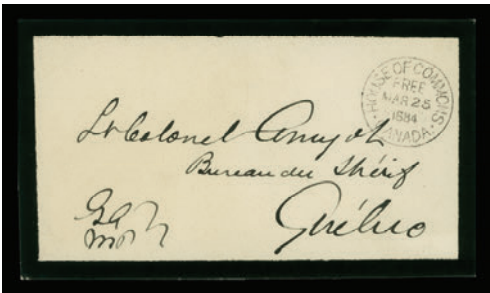 HOUSE OF COMMONS
FREE
MAR 25
1884
CANADA.
Lt Colonel Amyot
Bureau du Shérif
Québec